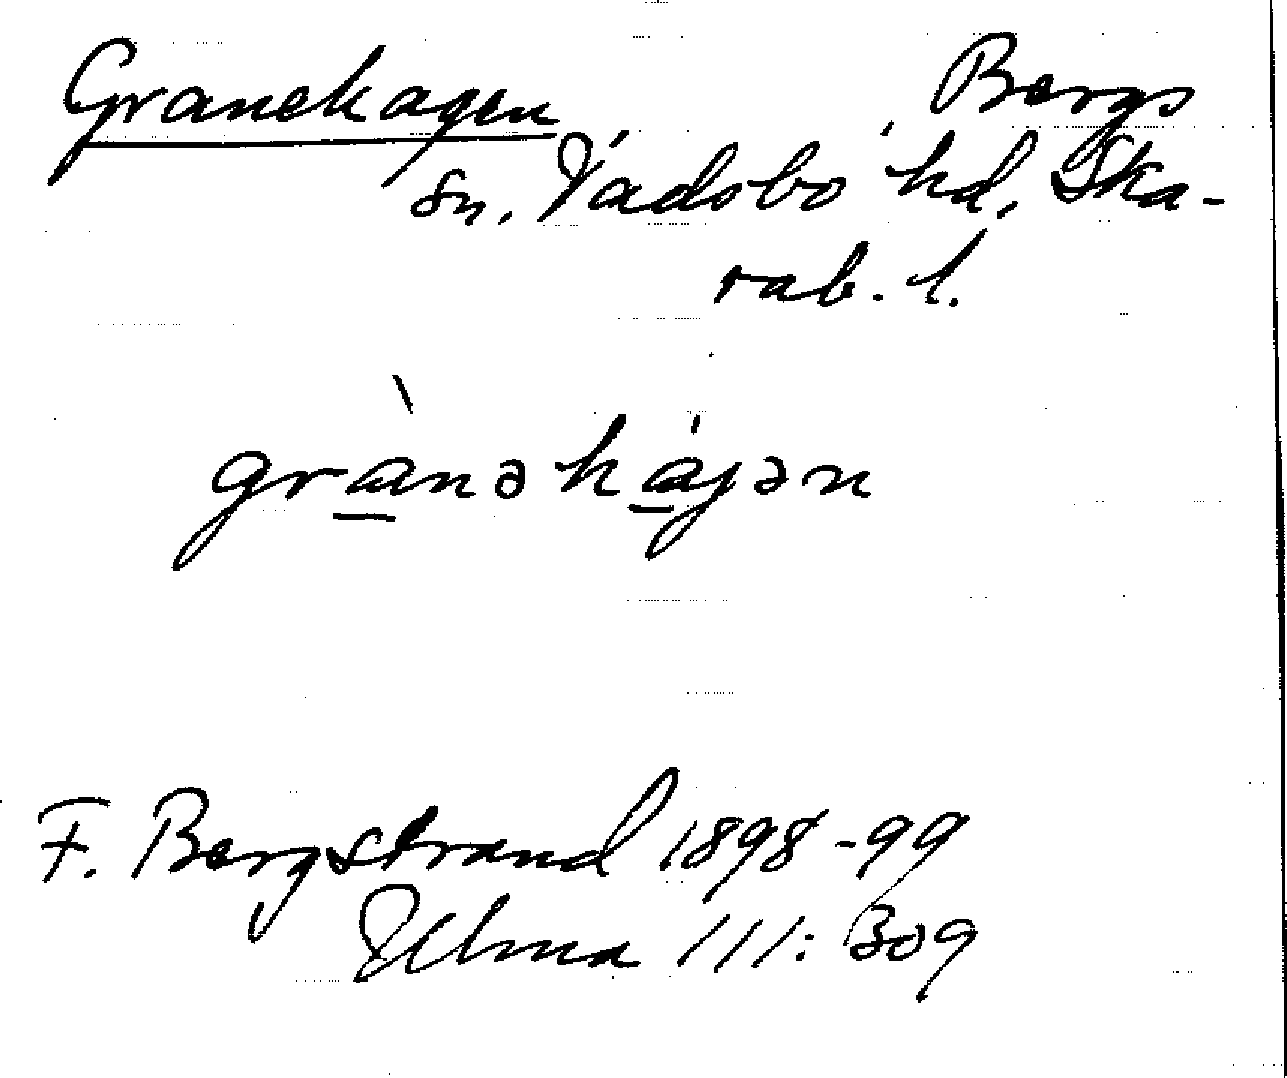 Granehagen Bergs
sn. Vadsbo hd, Ska-
rab. l.
grànəhájən
F. Bergstrand 1898-99
Ulma 111: 309